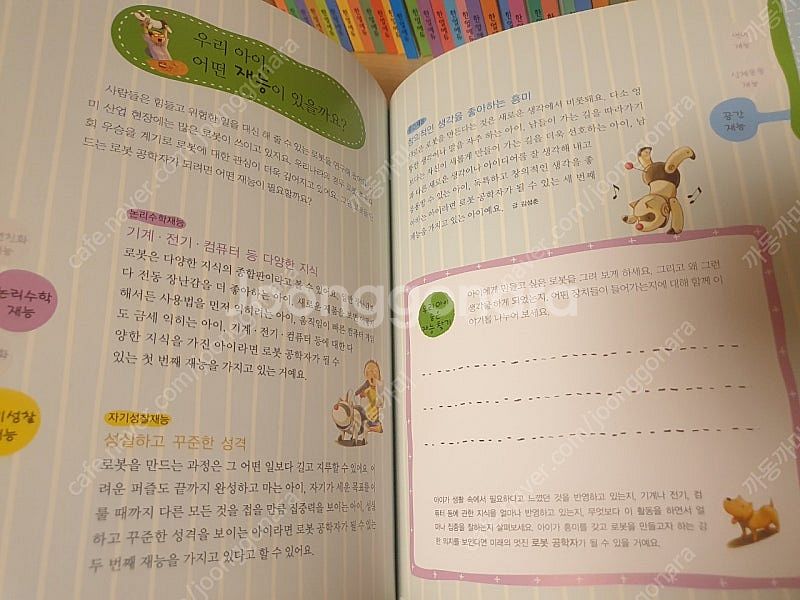 우리 아이,
어떤 재능이 있을까요?
사람들은 힘들고 위험한 일을 대신 해 줄 수 있는 로봇을
미 산업 현장에는 많은 로봇이 쓰이고 있지요. 우리나라의 경우
회 우승을 계기로 로봇에 대한 관심이 더욱 깊어지고 있어요. 그럼
드는 로봇 공학자가 되려면 어떤 재능이 필요할까요?
논리수학재능
기계·전기·컴퓨터 등 다양한 지식
로봇은 다양한 지식의 종합판이라고 볼 수 있어요. 일반 장난감보
다 전동 장난감을 더 좋아하는 아이, 새로운 제품을 보면
해서든 사용법을 먼저 익히려는 아이, 움직임이 빠른 컴퓨터 게임
도 금세 익히는 아이, 기계·전기·컴퓨터 등에 대한 다
양한 지식을 가진 아이라면 로봇 공학자가 될 수
있는 첫 번째 재능을 가지고 있는 거예요.
자기성찰재능
성실하고 꾸준한 성격
로봇을 만드는 과정은 그 어떤 일보다 길고 지루할 수 있어요. 어
려운 퍼즐도 끝까지 완성하고 마는 아이, 자기가 세운 목표를 이
룰 때까지 다른 모든 것을 접을 만큼 집중력을 보이는 아이, 성실
하고 꾸준한 성격을 보이는 아이라면 로봇 공학자가 될 수 있는
두 번째 재능을 가지고 있다고 할 수 있어요.
논리수학
재능
성찰
재능
언어
재능
신체운동
재능
공간
재능
창의적인 생각을 좋아하는 흥미
로운 로봇을 만드는 것은 새로운 생각에서 비롯돼요. 다소 엉
뚱한 생각이나 말을 자주 하는 아이, 남들이 가는 길을 따라가기
보다는 자신이 새롭게 만들어 가는 길을 더욱 선호하는 아이, 남
과 다른 새로운 생각이나 아이디어를 잘 생각해 내고
활용할 수 있는 아이, 독특하고 창의적인 생각을 좋
아하는 아이라면 로봇 공학자가 될 수 있는 세 번째
재능을 가지고 있는 아이예요. 글 김성춘
우리 아이
숨은
재능 찾기
아이에게 만들고 싶은 로봇을 그려 보게 하세요. 그리고 왜 그런
생각을 하게 되었는지, 어떤 장치들이 들어가는지에 대해 함께 이
야기를 나누어 보세요.
아이가 생활 속에서 필요하다고 느꼈던 것을 반영하고 있는지, 기계나 전기, 컴
퓨터 등에 관한 지식을 얼마나 반영하고 있는지, 무엇보다 이 활동을 하면서 얼
마나 집중을 잘하는지 살펴보세요. 아이가 흥미를 갖고 로봇을 만들고자 하는 강
한 의지를 보인다면 미래의 멋진 로봇 공학자가 될 수 있을 거예요.
한얼에듀
joonggonara
cafe.naver.com/joonggonara
까동까미